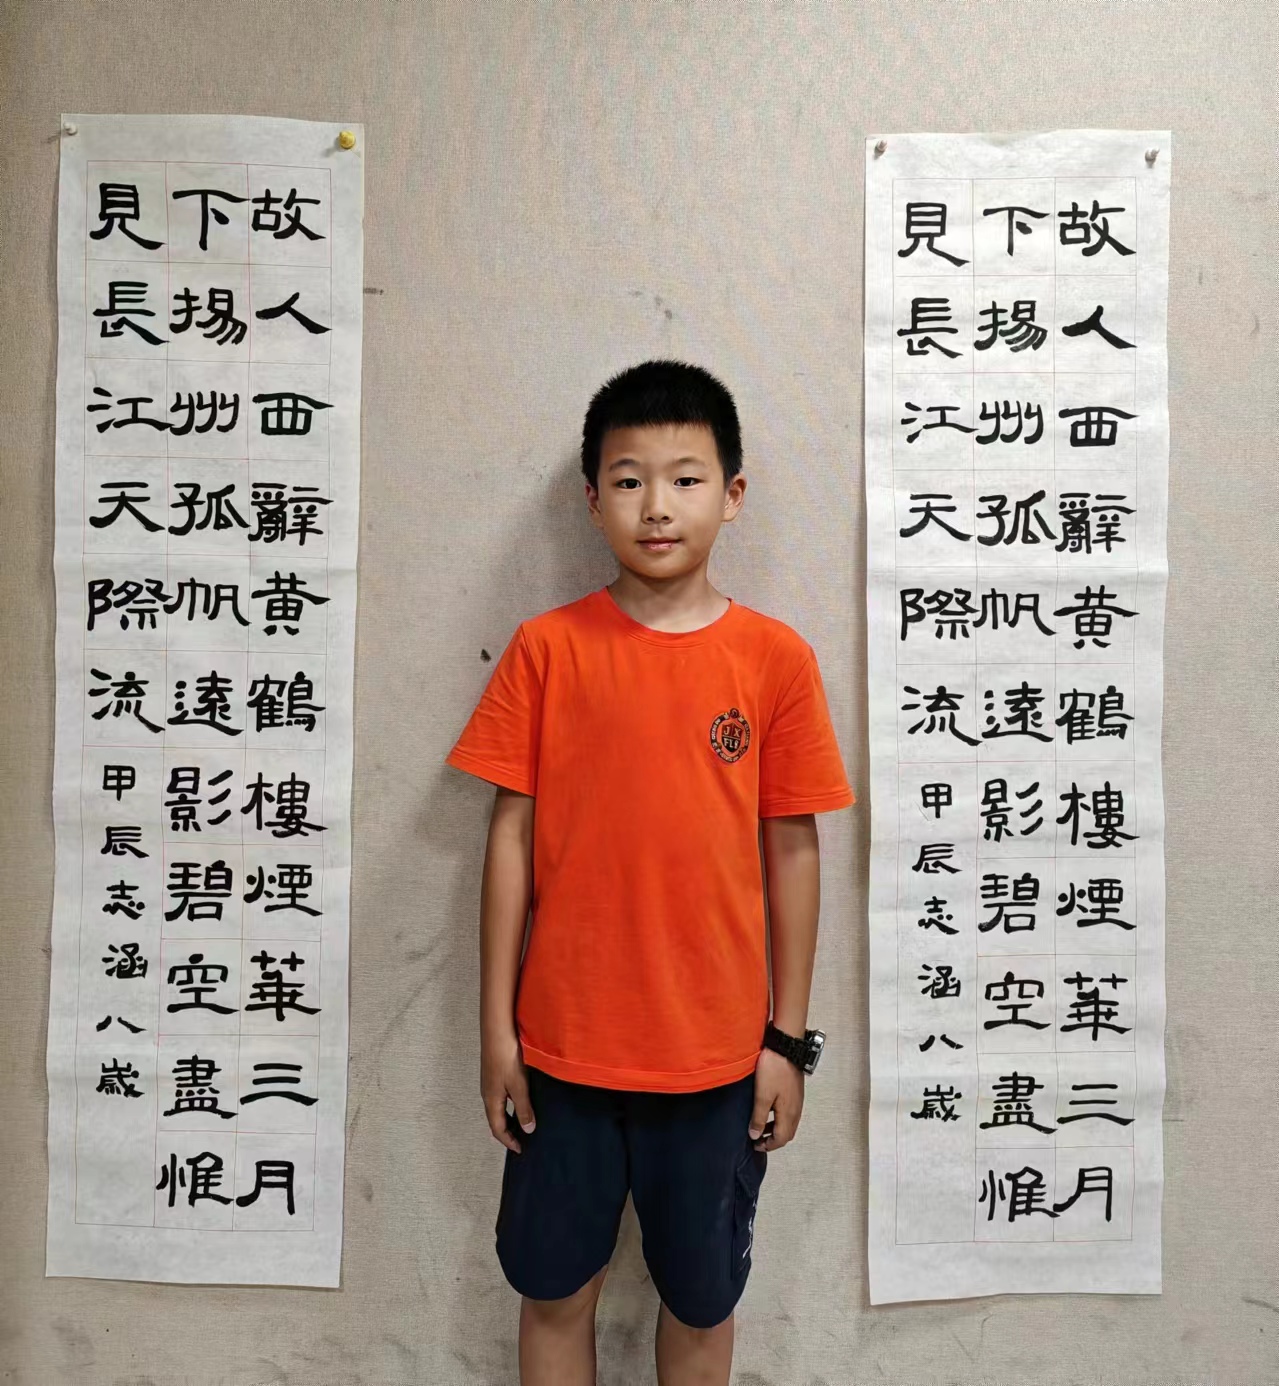 故人西辭黄鶴樓煙華三月
下揚州孤帆遠影碧空盡惟
見長江天際流
甲辰志涵八歲
故人西辭黄鶴樓煙華三月
下揚州孤帆遠影碧空盡惟
見長江天際流
甲辰志涵八歲
JX
FLS